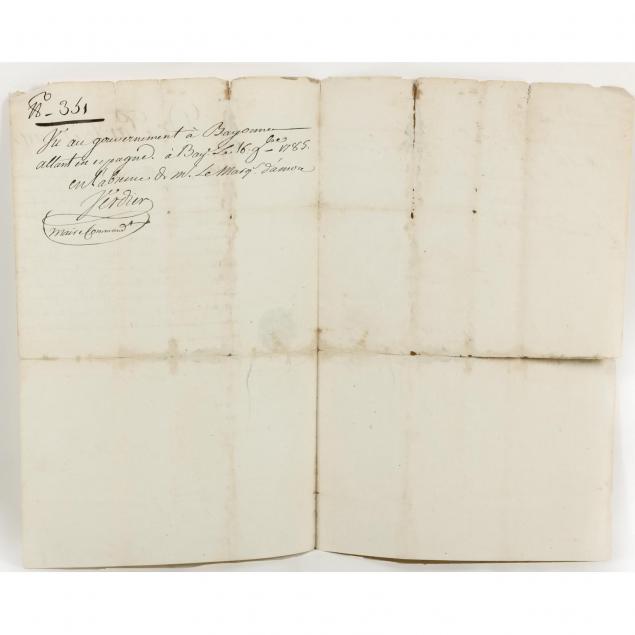 No - 351
Vû au gouvernement à Bayonne
allant en espagne. à Bay.e Le 16. 9bre 1785.
en L'absence de m. Le Marq.s d'amou
Verdier
maire Command.t